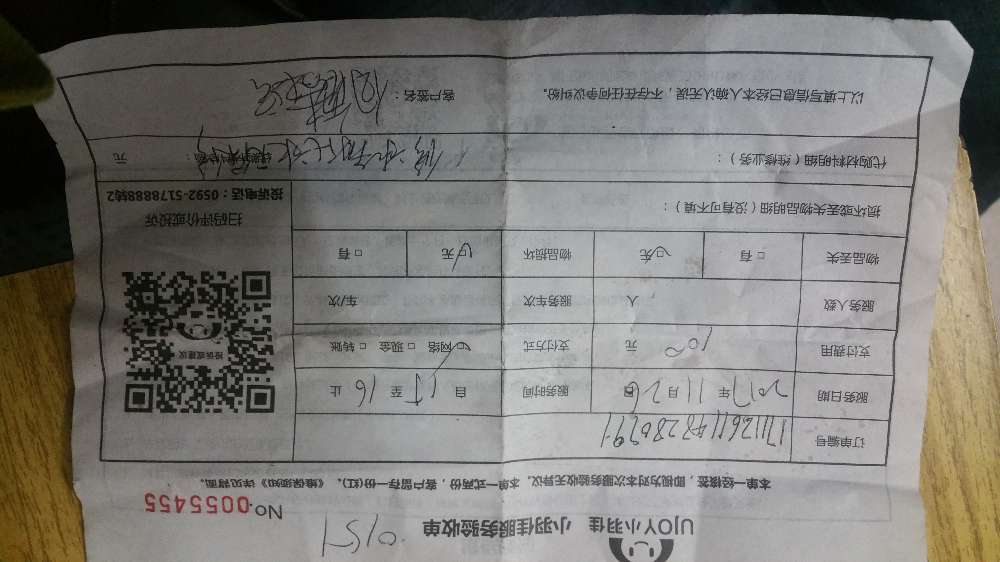 UJOY小羽佳 小羽佳服务验收单
No.0055455
本单一经核签，即视为对本次服务验收无异议，本单一式两份，客户留存一份(红)，《维保须知》详见背面。
订单编号
服务日期 2017年11月26日 服务时间 自15至16止
支付费用 100元 支付方式 ☑网络 □现金 □转账
服务人数 人 服务车次 车/次
物品丢失 □有 ☑无 物品损坏 □有 ☑无
损坏或丢失物品明细（没有可不填）：
代购材料明细（维修业务）： 元
以上填写信息已经本人确认无误，不存在任何争议纠纷。 客户签名：
投诉或建议
扫码评价或投诉
投诉电话：0592-5178888转2